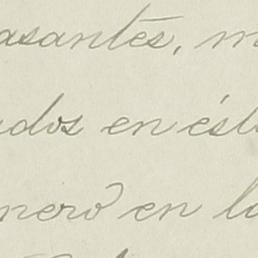 asantes, m
ados en ésta
nero en la